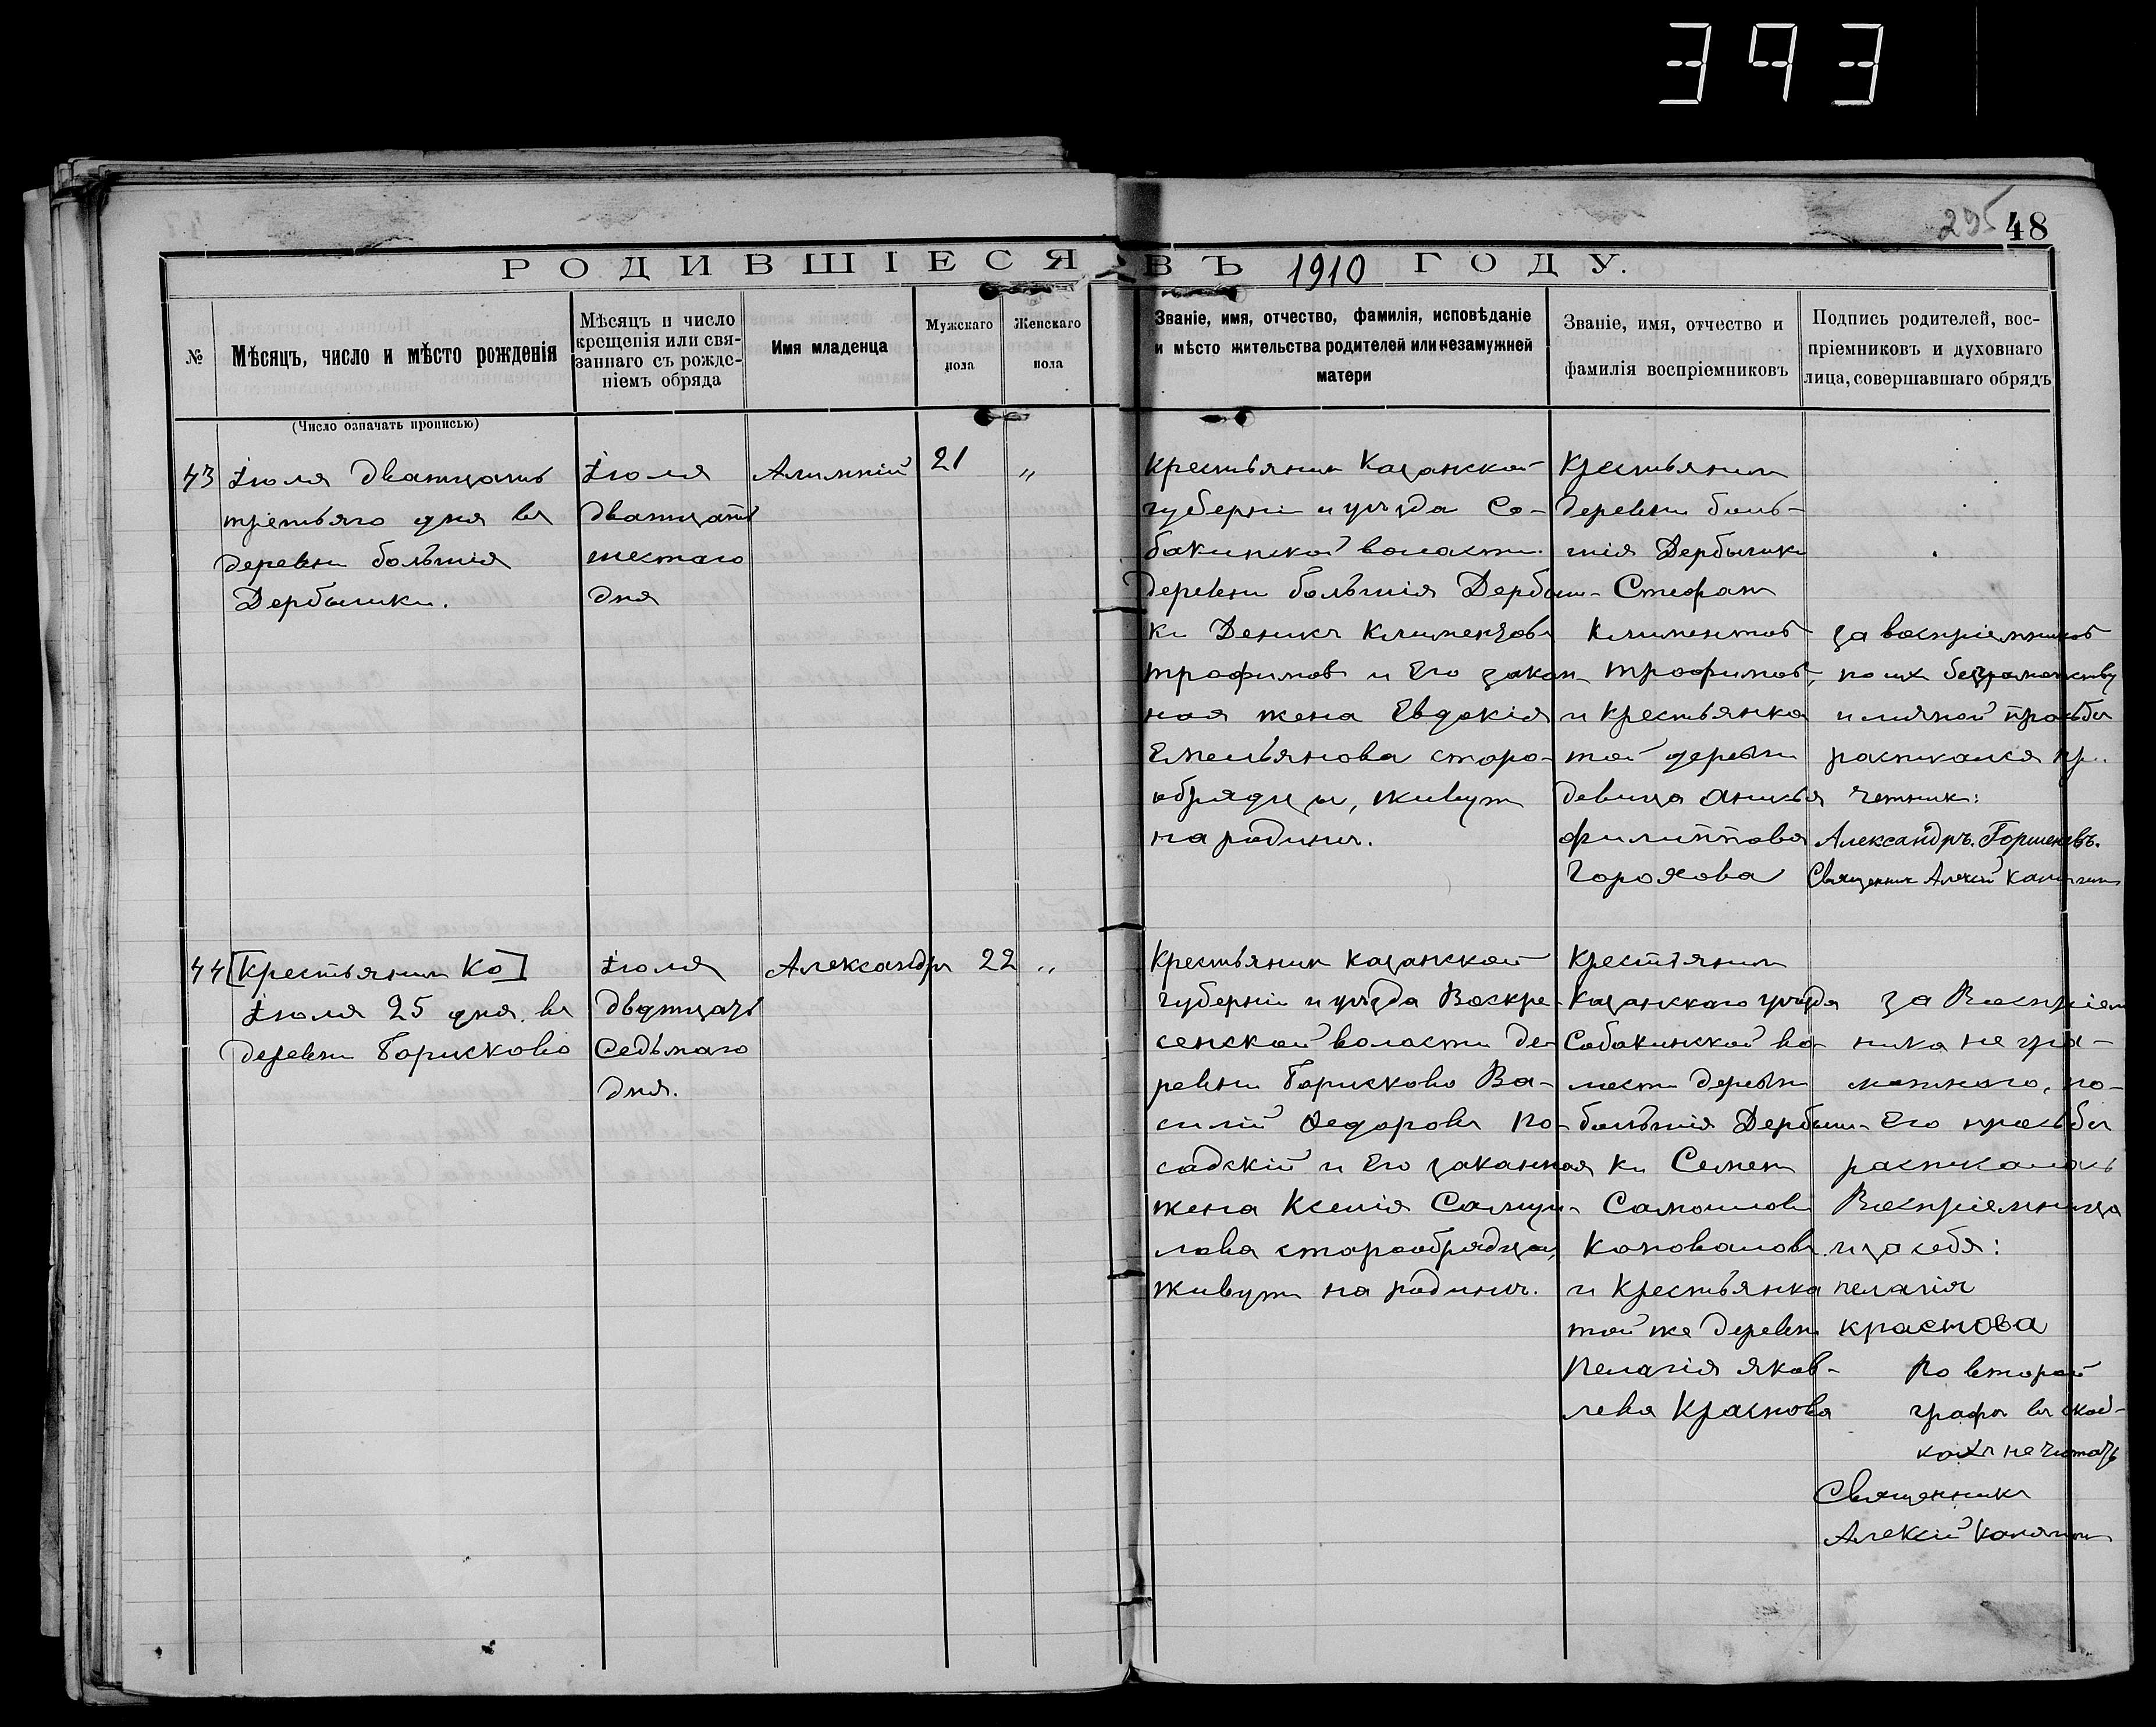 393
295 48
РОДИВШІЕСЯ ВЪ 1910 ГОДУ.
№
Мѣсяцъ, число и мѣсто рожденія
Мѣсяцъ и число
крещенія или свя-
заннаго съ рожде-
ніемъ обряда
Имя младенца
Мужскаго
пола
Женскаго
пола
Званіе, имя, отчество, фамилія, исповѣданіе
и мѣсто жительства родителей или незамужней
матери
Званіе, имя, отчество и
фамилія воспріемниковъ
Подпись родителей, вос-
пріемниковъ и духовнаго
лица, совершавшаго обрядъ
(Число означать прописью)
43
Іюля дватцать
третьяго дня въ
деревни большія
Дербышки.
Іюля
дватцать
шестаго
дня
Алимпій
21
„
Крестьянин Казанской
губерніи и уѣзда Со-
бакинской волости
деревни большія Дербыш-
ки Денисъ Климентовъ
трофимов и Его закон-
ная жена Евдокія
Емельянова старо-
обрядцы, живут
на родинѣ.
Крестьянин
деревни боль-
шія Дербышки
Стефан
Климентов
трофимов,
и крестьянка
той деревни
девица Анисья
филиппова
Горохова
за воспріемников
по их безграмотству
и личной просьбѣ
росписался
четчик:
Александръ. Горшеневъ.
Священник Алексій
44
[Крестьянин Ка]
Іюля 25 дня въ
деревни Борисково
Іюля
дватцать
Седьмаго
дня.
Александръ
22
„
Крестьянин Казанской
губерніи и уѣзда Воскре-
сенской волости де-
ревни Борисково Ва-
силій Федоровъ По-
садскій и Его законная
жена Ксенія Самуи-
лова старообрядцы,
живут на родинѣ.
Крестьянин
Казанскаго уѣзда
Собакинской во-
лости деревни
большія Дербыш-
ки Семен
Самоилов
Коновалов
и крестьянка
той же деревни
Пелагія Яков-
лева Краснова
за Воспріем
ника не гра-
мотнаго, по
Его просьбѣ
росписалась
Воспріемница
и за себя:
пелагія
краснова
По второй
графѣ въ скоб-
кахъ не читать
Священникъ
Алексій